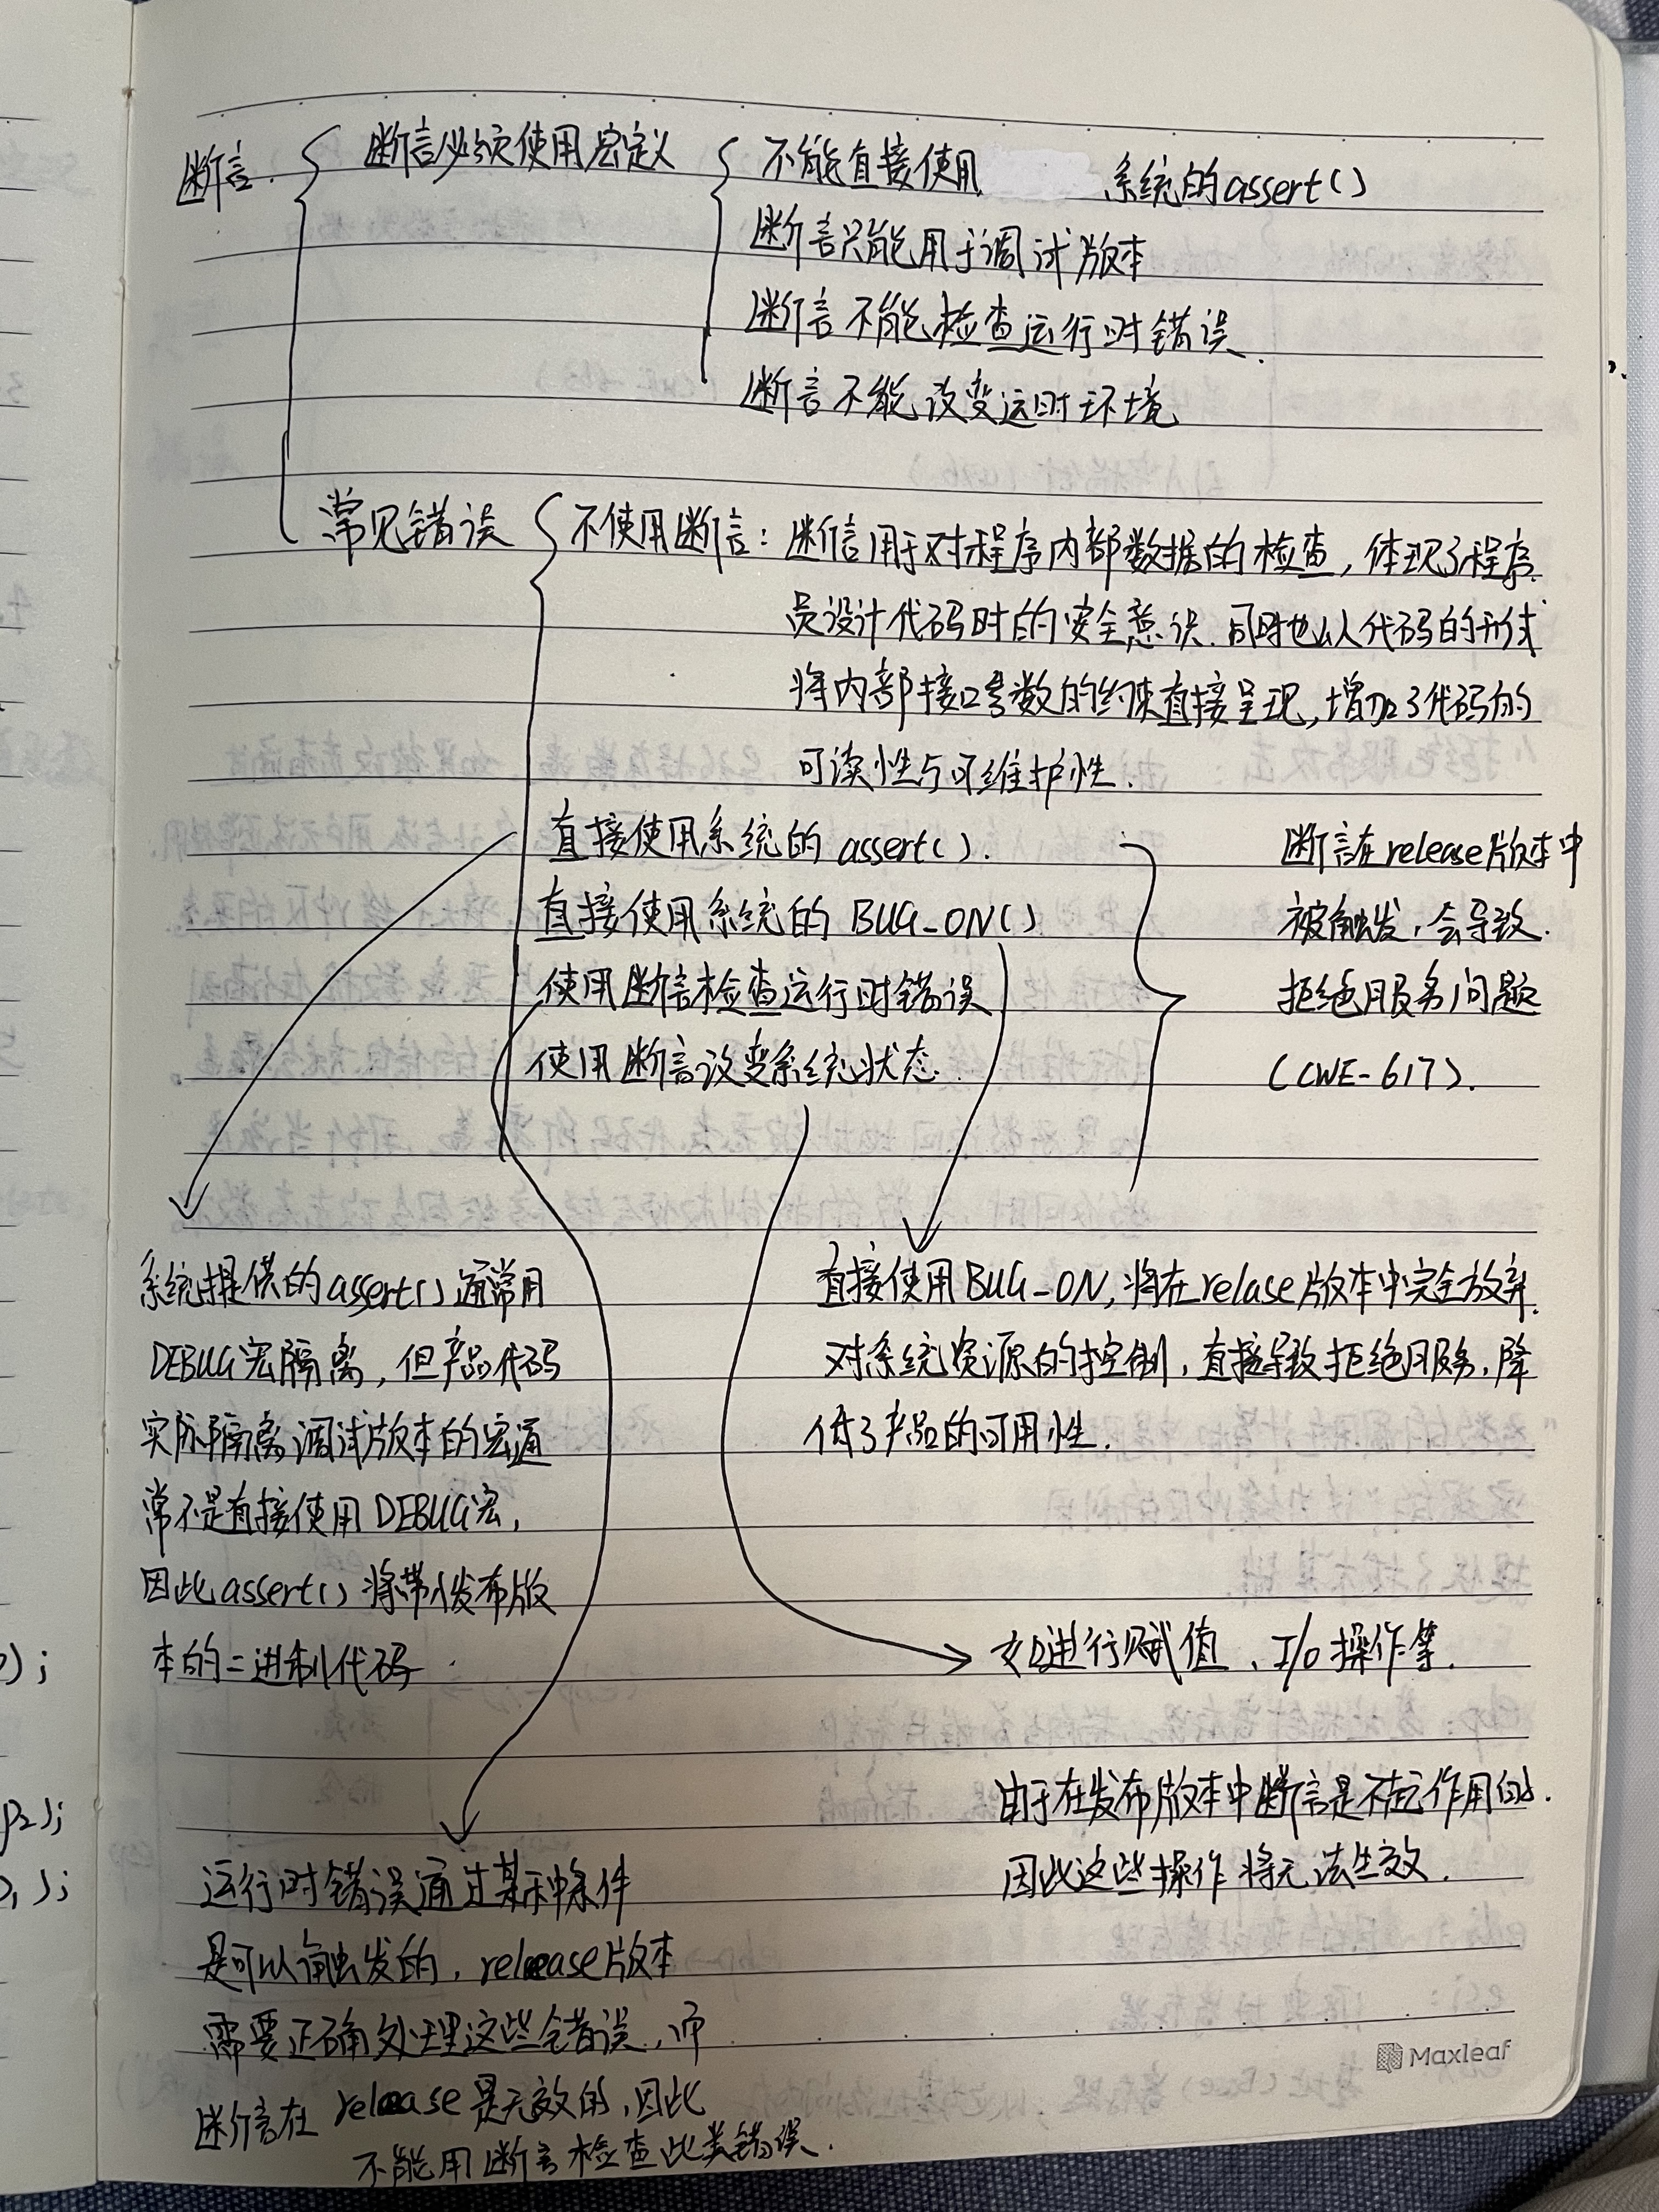 断言
断言必须使用宏定义
不能直接使用 系统的assert()
断言只能用于调试版本
断言不能检查运行时错误.
断言不能改变运时环境
常见错误
不使用断言: 断言用于对程序内部数据的检查, 体现了程序
员设计代码时的安全意识. 同时也以代码的形式
将内部接口参数的约束直接呈现, 增加了代码的
可读性与可维护性.
直接使用系统的 assert().
直接使用系统的 BUG_ON()
使用断言检查运行时错误
使用断言改变系统状态.
断言在release版本中
被触发, 会导致.
拒绝服务问题
(CWE-617).
系统提供的assert()通常用
DEBUG宏隔离, 但产品代码
实际隔离调试版本的宏通
常不是直接使用DEBUG宏,
因此assert()将带入发布版
本的二进制代码
直接使用BUG_ON, 将在relase版本中完全放弃.
对系统资源的控制, 直接导致拒绝服务, 降
低了产品的可用性.
如进行赋值、I/O操作等.
由于在发布版本中断言是不起作用的.
因此这些操作将无法生效.
运行时错误通过某种条件
是可以触发的, release版本
需要正确处理这些错误, 而
断言在release是无效的, 因此
不能用断言检查此类错误.
Maxleaf